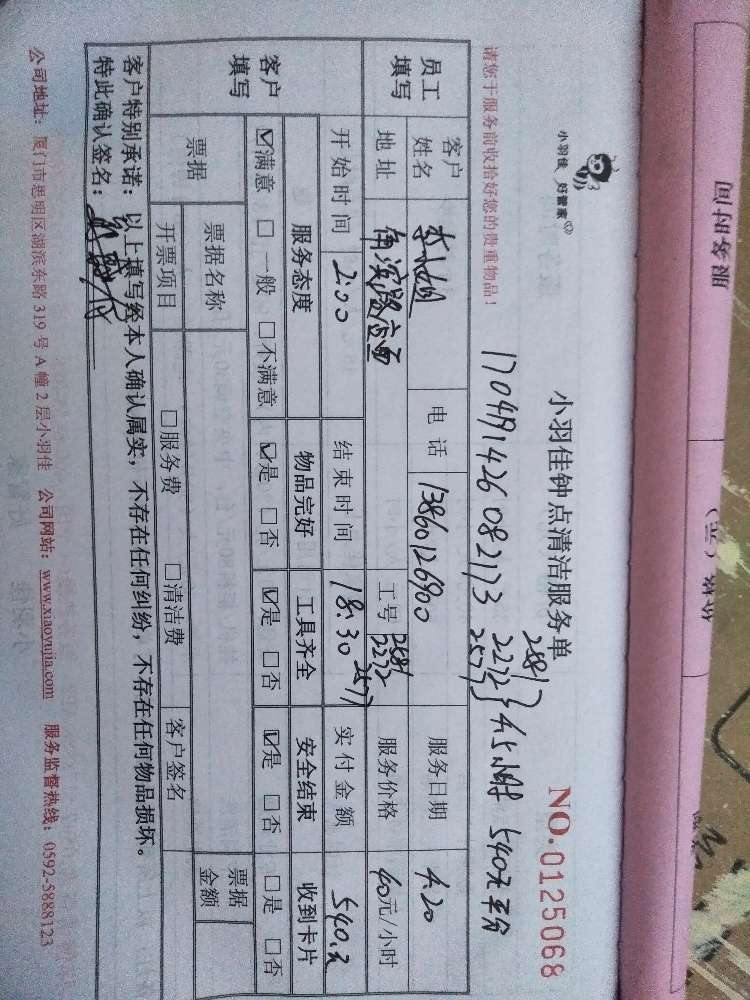 小羽佳 好管家
小羽佳钟点清洁服务单
NO.0125068
请您于服务前收拾好您的贵重物品！
170419142608217 3
2581
2272
2577
4.5小时 540元平分
员工填写
客户姓名 李小姐 电话 13860126900 服务日期 4.20
地址 工号 2581 2272 2577 服务价格 40元/小时
开始时间 2:00 结束时间 18:30 实付金额 540.元
客户填写
服务态度 物品完好 工具齐全 安全结束 收到卡片
☑满意 □一般 □不满意 ☑是 □否 ☑是 □否 ☑是 □否 □是 □否
票据 票据名称 票据金额
开票项目 □服务费 □清洁费 客户签名
客户特别承诺：以上填写经本人确认属实，不存在任何纠纷，不存在任何物品损坏。
特此确认签名：
公司地址：厦门市思明区湖滨东路 319 号 A 幢 2 层小羽佳 公司网站：www.xiaoyujia.com 服务监督热线：0592-5888123
服务时间